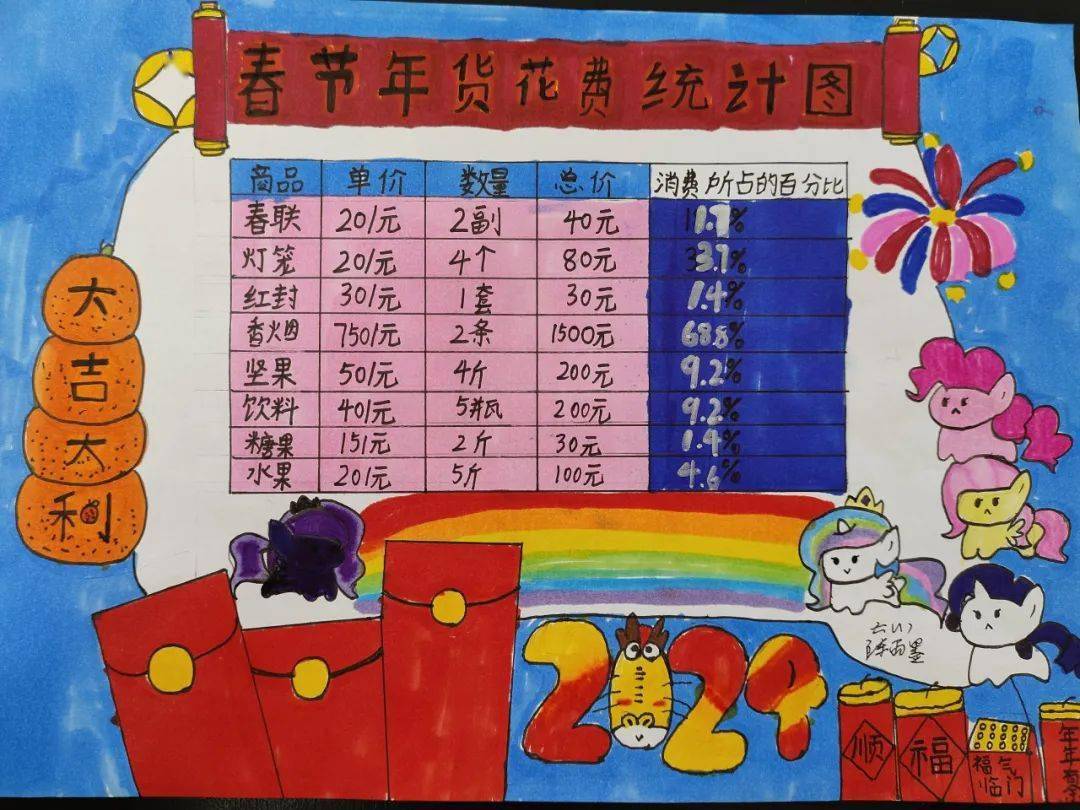 春节年货花费统计图
商品 单价 数量 总价 消费所占的百分比
春联 20/元 2副 40元 1.7%
灯笼 20/元 4个 80元 3.7%
红封 30/元 1套 30元 1.4%
香烟 750/元 2条 1500元 68.8%
坚果 50/元 4斤 200元 9.2%
饮料 40/元 5瓶 200元 9.2%
糖果 15/元 2斤 30元 1.4%
水果 20/元 5斤 100元 4.6%
大吉大利
2024
六(1)
顺
福
福气临门
年年